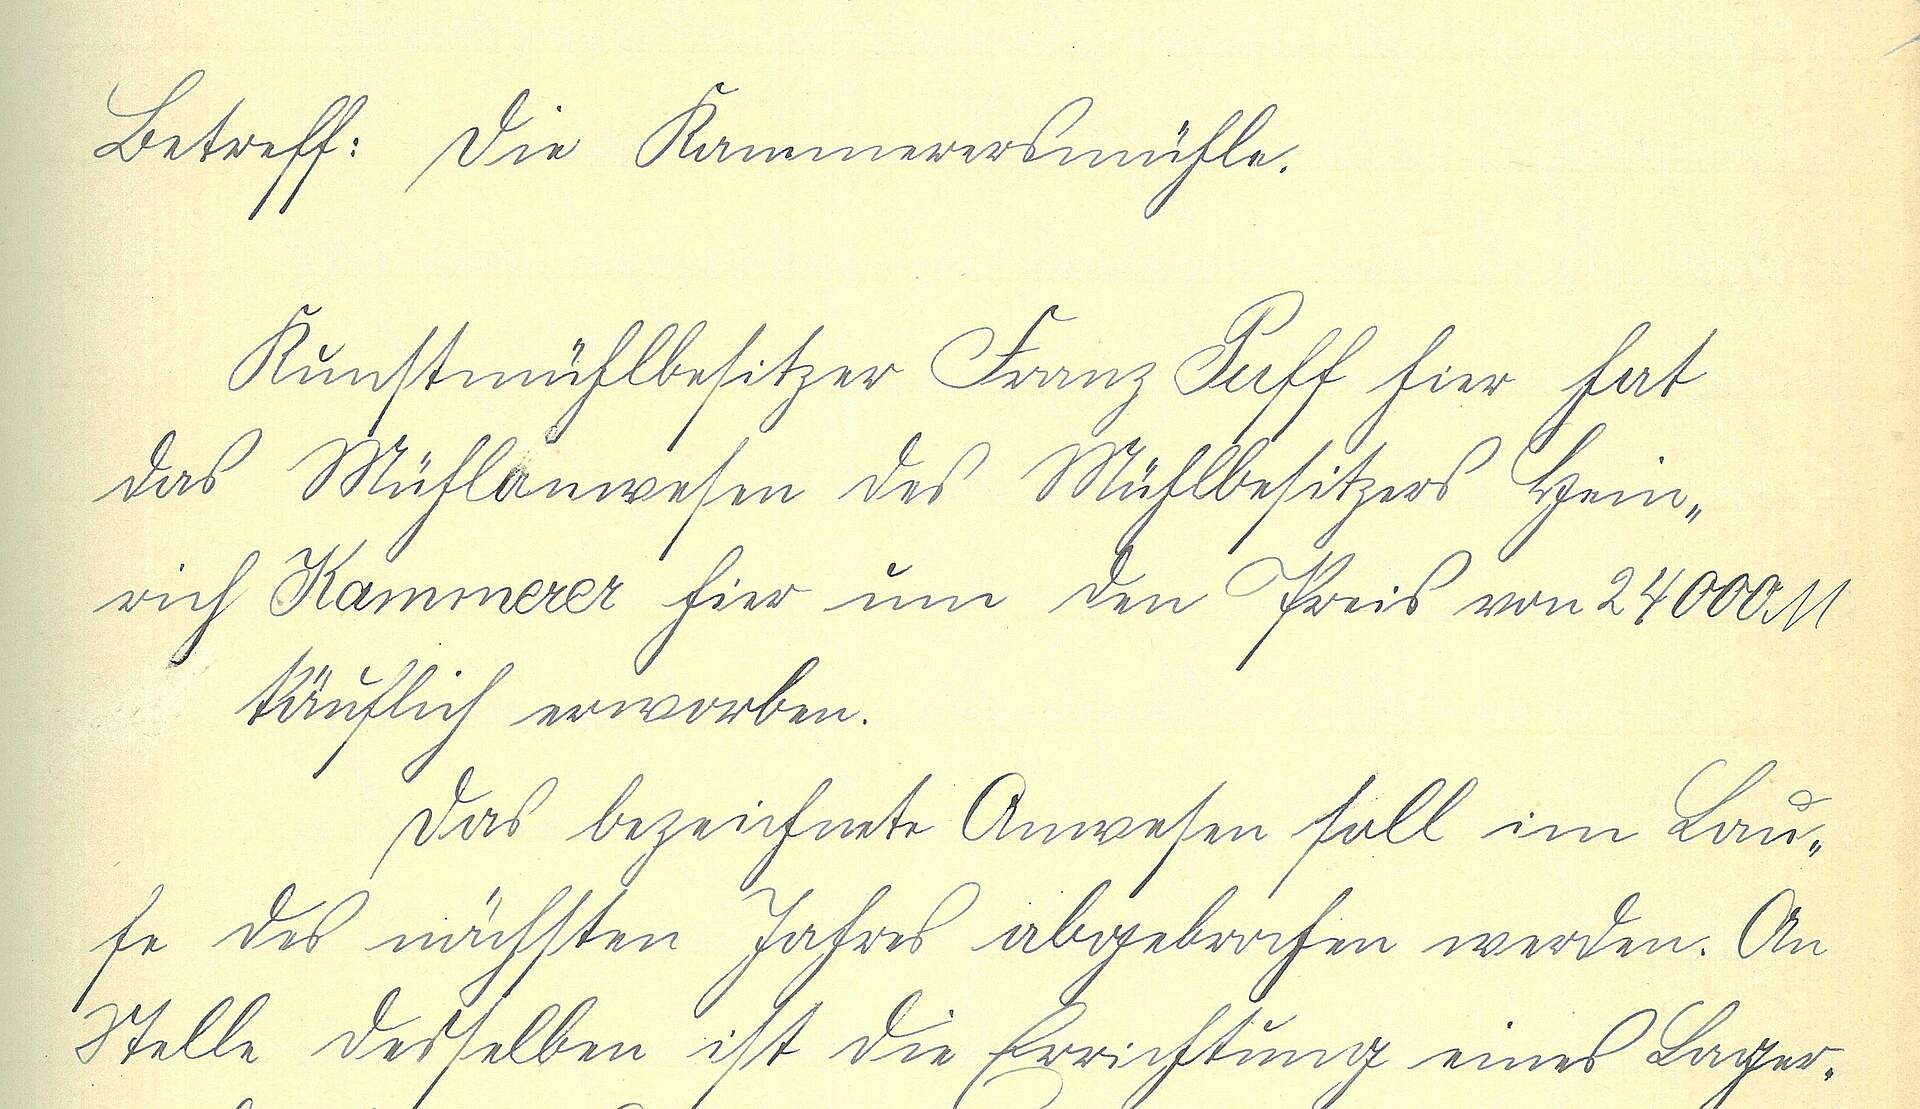 Betreff: Die Kammerersmühle.
Kunstmühlbesitzer Franz Puff hier hat
das Mühlanwesen des Mühlbesitzers Hein„
rich Kammerer hier um den Preis von 24000 M
käuflich erworben.
Das bezeichnete Anwesen soll im Lau„
fe des nächsten Jahres abgebrochen werden. An
Stelle desselben ist die Errichtung eines Lager„